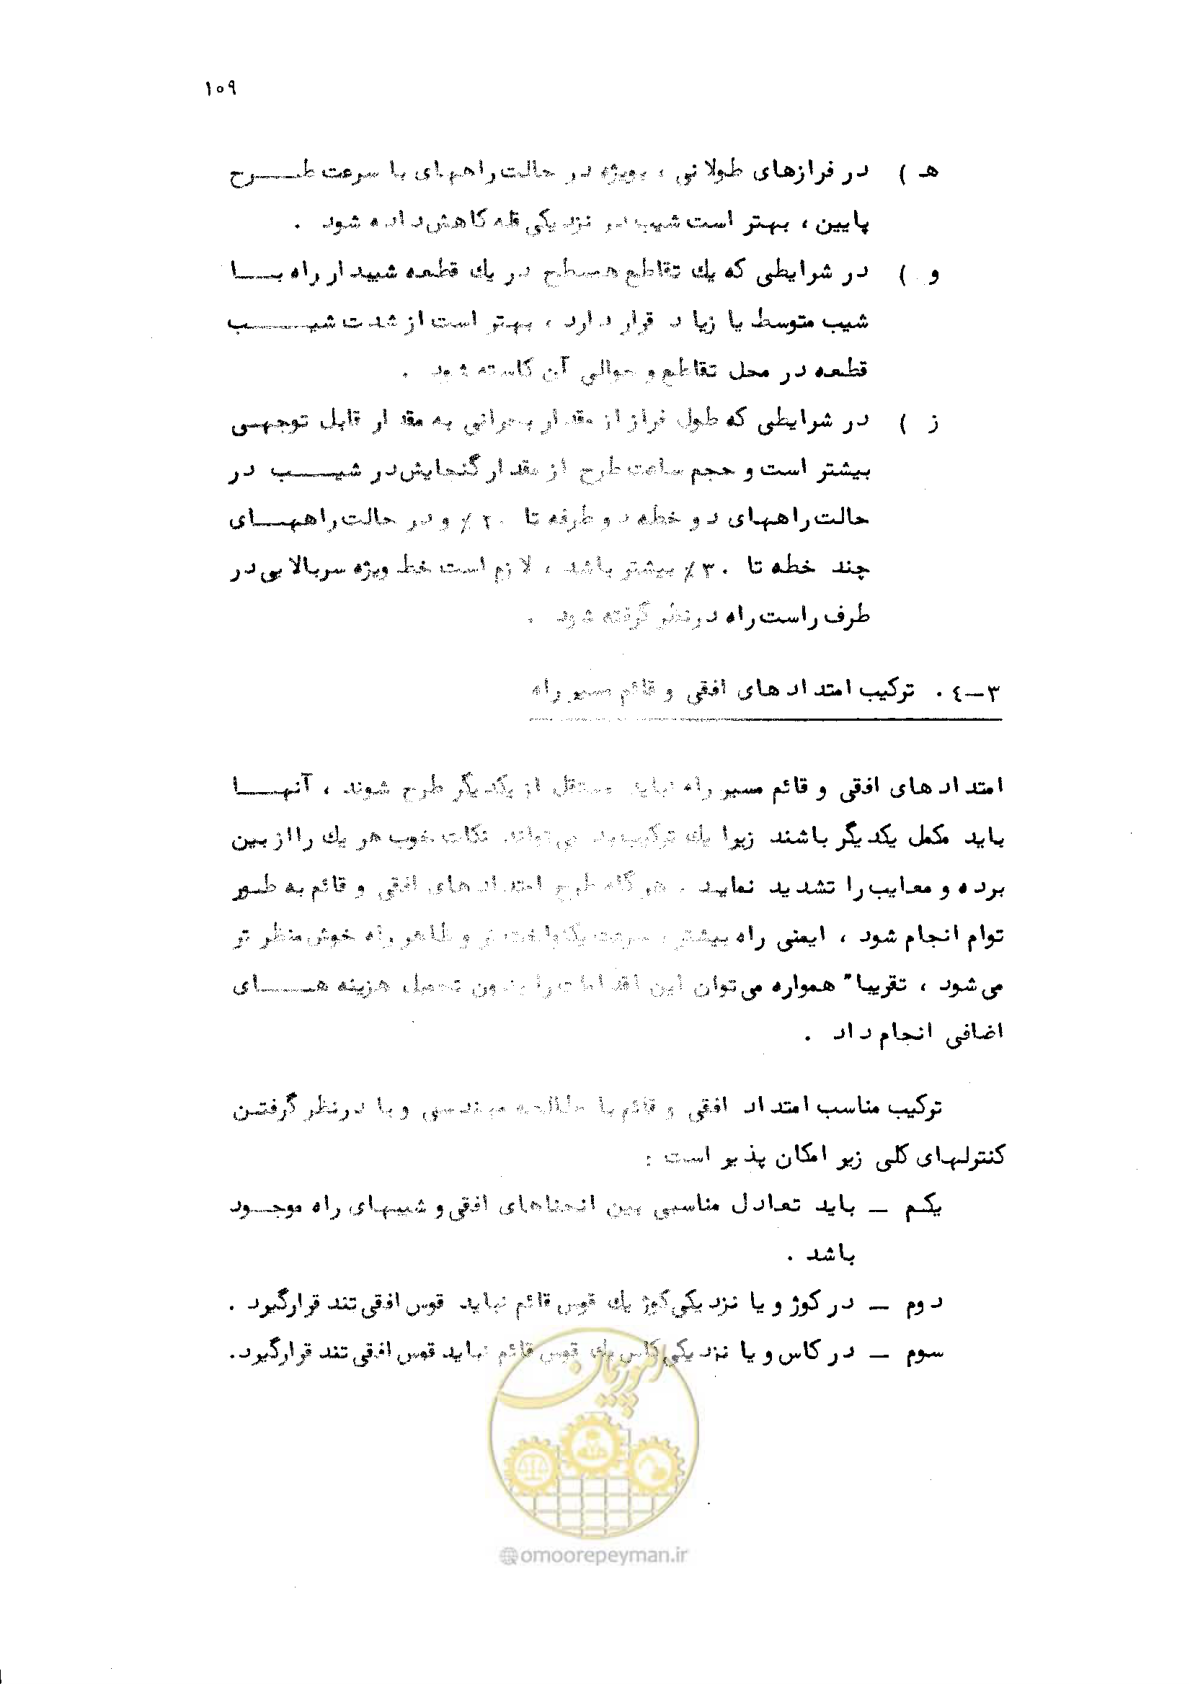 ۱۰۹
هـ ) در فرازهای طولانی ، بویژه در حالت راههای با سرعت طـــرح
پایین ، بهتر است شیب در نزدیکی قله کاهش داده شود .
و ) در شرایطی که یك تقاطع همسطح در یك قطعه شیبدار راه بــا
شیب متوسط یا زیاد قرار دارد ، بهتر است از شدت شیـــب
قطعه در محل تقاطع و حوالی آن کاسته شود .
ز ) در شرایطی که طول فراز از مقدار بحرانی به مقدار قابل توجهـی
بیشتر است و حجم ساعت طرح از مقدار گنجایش در شیـــب در
حالت راههای دو خطه دو طرفه تا ۲۰٪ و در حالت راههــای
چند خطه تا ۳۰٪ بیشتر باشد ، لازم است خط ویژه سربالایی در
طرف راست راه درنظر گرفته شود .
۳-٤ . ترکیب امتدادهای افقی و قائم مسیر راه
امتدادهای افقی و قائم مسیر راه نباید مستقل از یکدیگر طرح شوند ، آنهــا
باید مکمل یکدیگر باشند زیرا یك ترکیب بد می‌تواند نکات خوب هر یك را از بین
برده و معایب را تشدید نماید . هر گاه طرح امتدادهای افقی و قائم به طـور
توام انجام شود ، ایمنی راه بیشتر ، سرعت یکنواخت تر و ظاهر راه خوش منظر تر
می‌شود ، تقریبا" همواره می‌توان این اقدامات را بدون تحمیل هزینه هــای
اضافی انجام داد .
ترکیب مناسب امتداد افقی و قائم با مطالعه مهندسی و با درنظر گرفتـن
کنترلهای کلی زیر امکان پذیر است :
یکـم ـ باید تعادل مناسبی بین انحناهای افقی و شیبهای راه موجــود
باشد .
دوم ـ در کوژ و یا نزدیکی کوژ یك قوس قائم نباید قوس افقی تند قرارگیرد .
سوم ـ در کاس و یا نزدیکی کاس یك قوس قائم نباید قوس افقی تند قرارگیرد.
امور پیمان
@omoorepeyman.ir